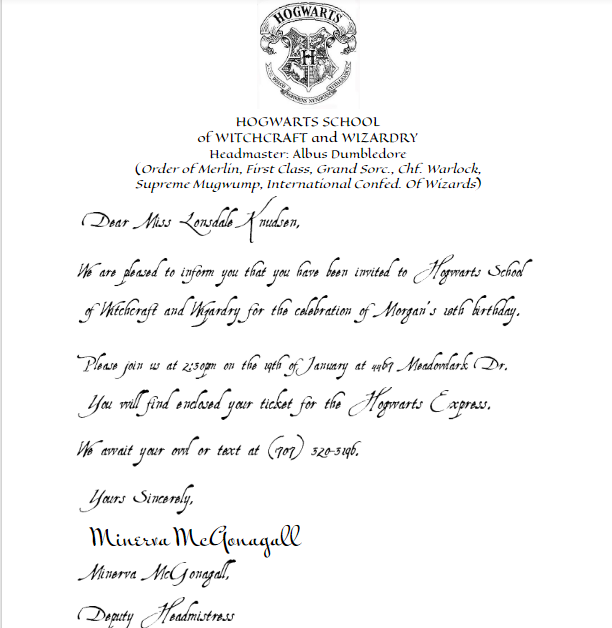 HOGWARTS
HOGWARTS SCHOOL
of WITCHCRAFT and WIZARDRY
Headmaster: Albus Dumbledore
(Order of Merlin, First Class, Grand Sorc., Chf. Warlock,
Supreme Mugwump, International Confed. Of Wizards)
Dear Miss Lonsdale Knudsen,
We are pleased to inform you that you have been invited to Hogwarts School
of Witchcraft and Wizardry for the celebration of Morgan's 10th birthday.
Please join us at 2:30pm on the 19th of January at 4467 Meadowlark Dr.
You will find enclosed your ticket for the Hogwarts Express.
We await your owl or text at (707) 320-3196.
Yours Sincerely,
Minerva McGonagall
Minerva McGonagall,
Deputy Headmistress